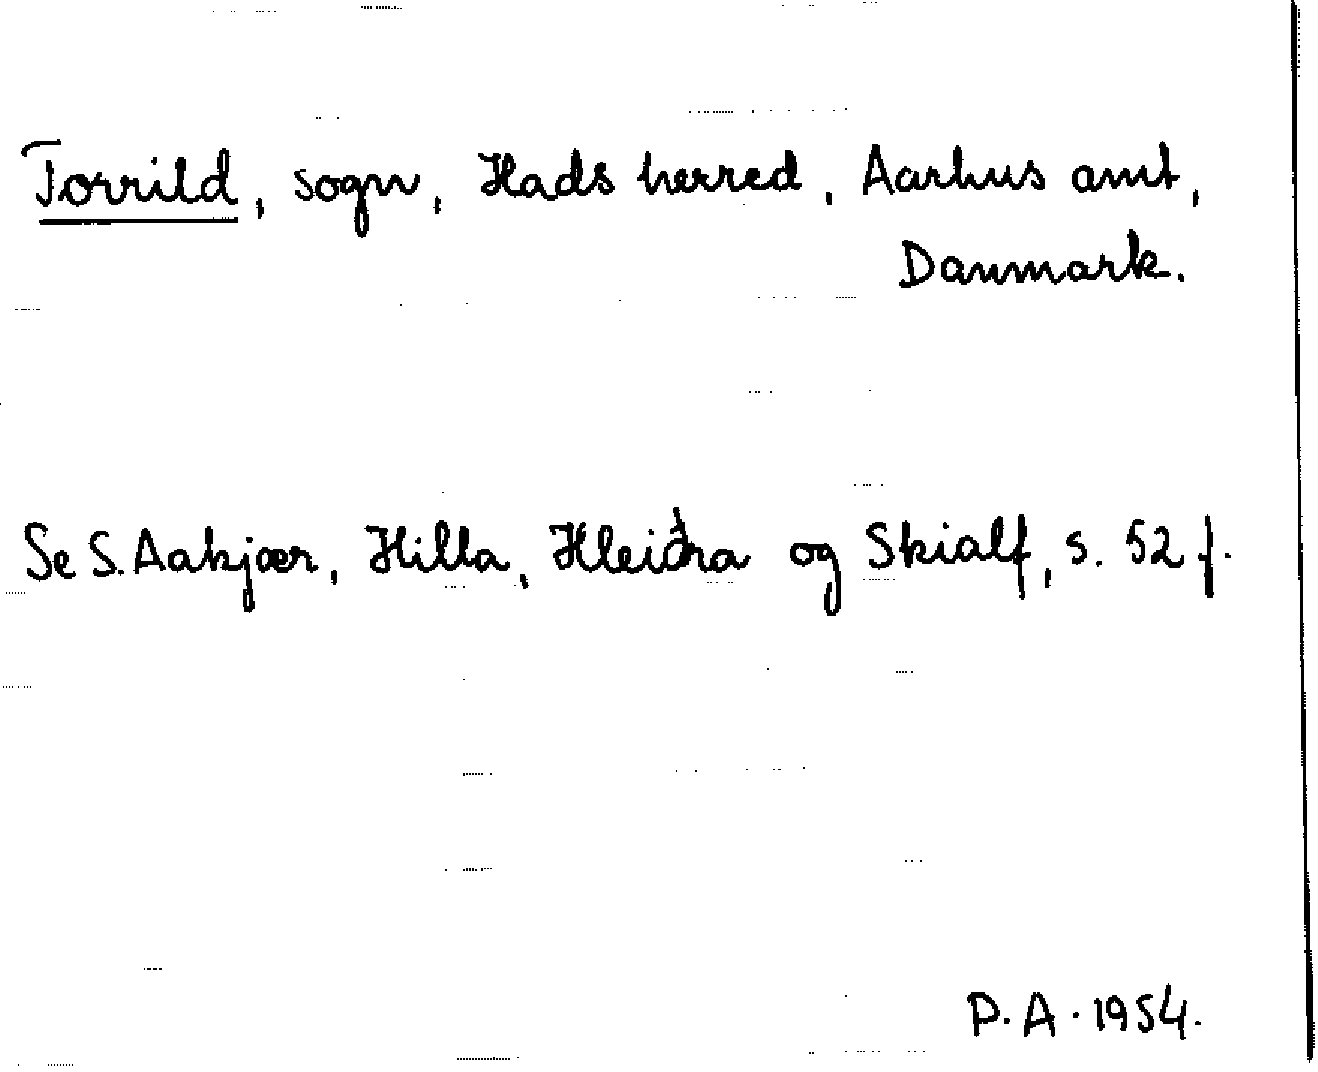 Torrild, sogn, Hads herred, Aarhus amt,
Danmark.
Se S. Aakjær, Hilla, Hleiðra og Skialf, s. 52 f.
P.A. 1954.